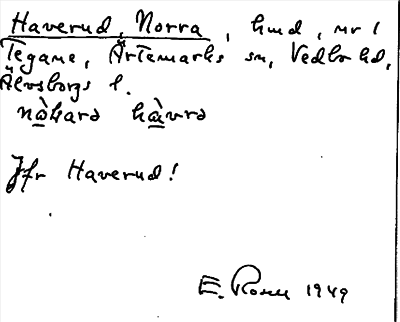 Haverud, Norra, hmd, nr 1
Tegane, Ärtemarks sn, Vedbo hd,
Älvsborgs l.
nò̲karə hæ̲̀vrə
Jfr Haverud!
E. 1949